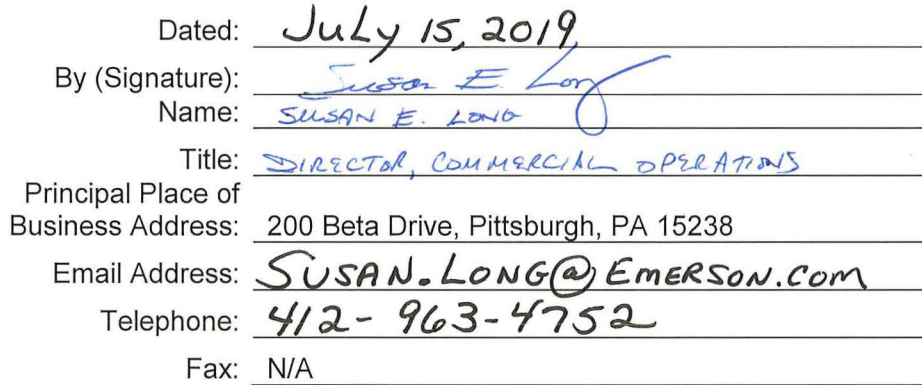 Dated: July 15, 2019
By (Signature): Susan E. Long
Name: SUSAN E. LONG
Title: DIRECTOR, COMMERCIAL OPERATIONS
Principal Place of
Business Address: 200 Beta Drive, Pittsburgh, PA 15238
Email Address: SUSAN.LONG@EMERSON.COM
Telephone: 412-963-4752
Fax: N/A